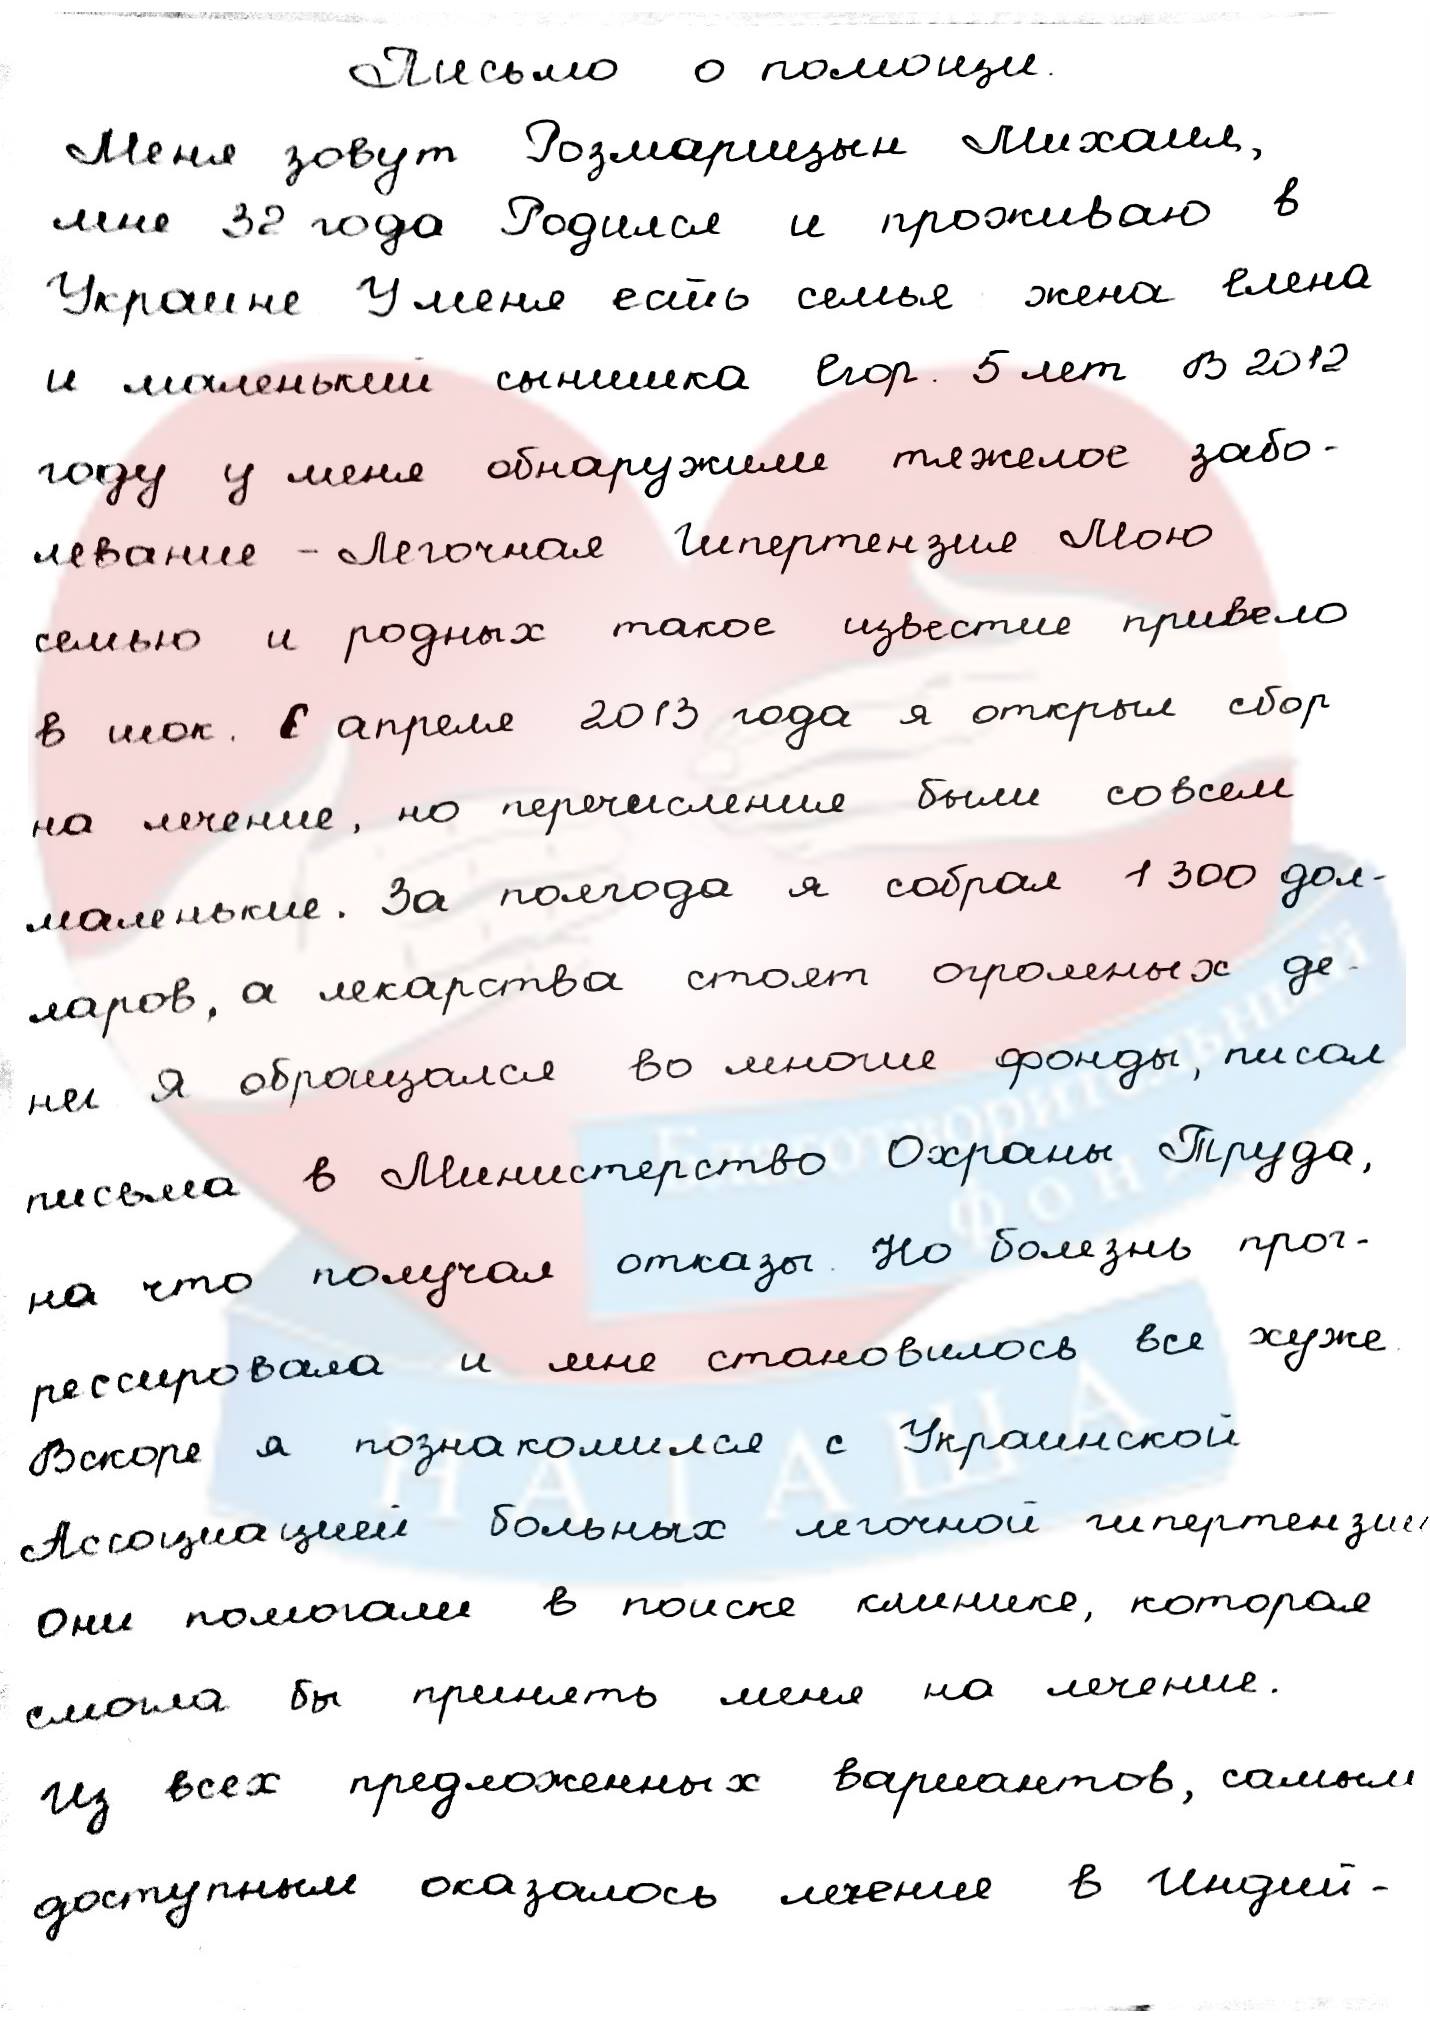 Письмо о помощи.
Меня зовут Розмарицын Михаил,
мне 32 года Родился и проживаю в
Украине У меня есть семья жена Елена
и маленький сынишка Егор. 5 лет В 2012
году у меня обнаружили тяжелое забо-
левание - Легочная Гипертензия Мою
семью и родных такое известие привело
в шок. С апреля 2013 года я открыл сбор
на лечение, но перечисления были совсем
маленькие. За полгода я собрал 1300 дол-
ларов, а лекарства стоят огромных де-
нег Я обращался во многие фонды, писал
письма в Министерство Охраны Труда,
на что получал отказы. Но болезнь прог-
рессировала и мне становилось все хуже.
Вскоре я познакомился с Украинской
Ассоциацией больных легочной гипертензии
Они помогали в поиске клинике, которая
смогла бы принять меня на лечение.
Из всех предложенных вариантов, самым
доступным оказалось лечение в Индий-
Благотворительный
фонд
НАТАША